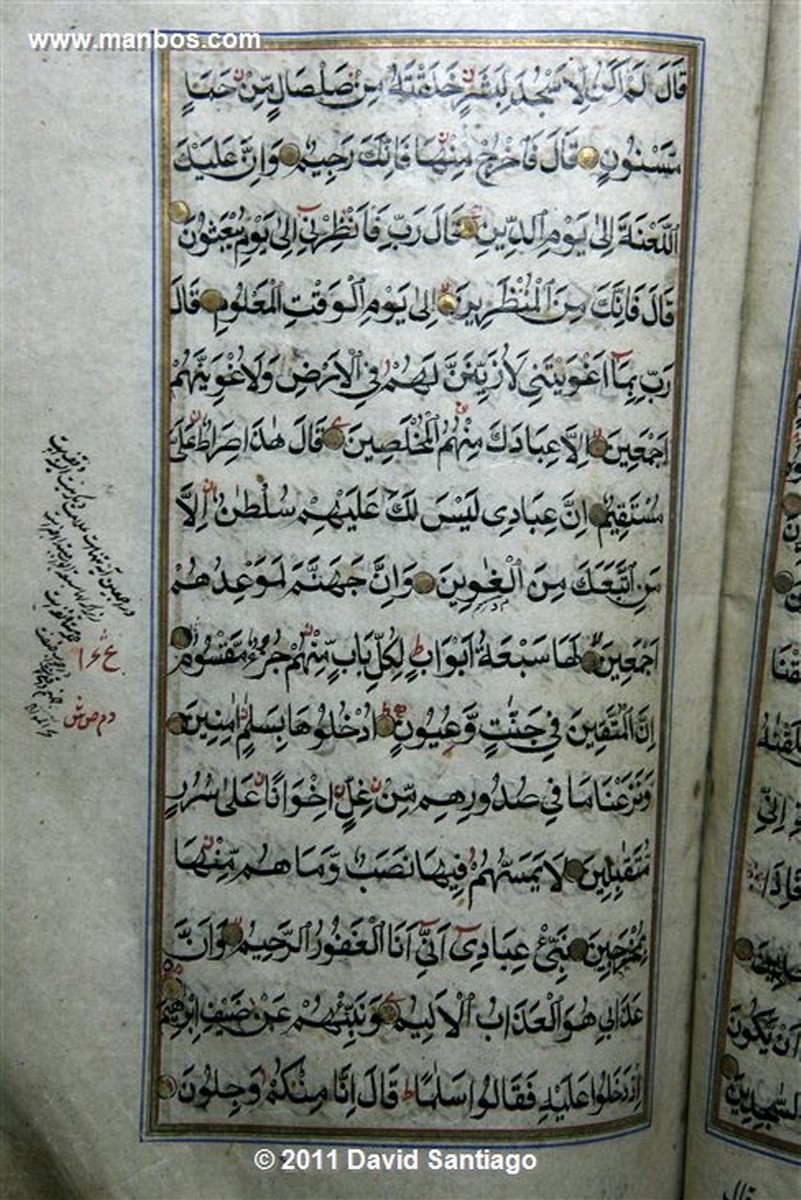 www.manbos.com
قَالَ لَمْ اَكُنْ لِاَسْجُدَ لِبَشَرٍ خَلَقْتَهُ مِنْ صَلْصَالٍ مِّنْ حَمَاٍ
مَّسْنُونٍ قَالَ فَاخْرُجْ مِنْهَا فَاِنَّكَ رَجِيمٌ وَاِنَّ عَلَيْكَ
اللَّعْنَةَ اِلٰى يَوْمِ الدِّينِ قَالَ رَبِّ فَاَنْظِرْنِي اِلٰى يَوْمِ يُبْعَثُونَ
قَالَ فَاِنَّكَ مِنَ الْمُنْظَرِينَ اِلٰى يَوْمِ الْوَقْتِ الْمَعْلُومِ قَالَ
رَبِّ بِمَا اَغْوَيْتَنِي لَاُزَيِّنَنَّ لَهُمْ فِي الْاَرْضِ وَلَاُغْوِيَنَّهُمْ
اَجْمَعِينَ اِلَّا عِبَادَكَ مِنْهُمُ الْمُخْلَصِينَ قَالَ هٰذَا صِرَاطٌ عَلَيَّ
مُسْتَقِيمٌ اِنَّ عِبَادِي لَيْسَ لَكَ عَلَيْهِمْ سُلْطٰنٌ اِلَّا
مَنِ اتَّبَعَكَ مِنَ الْغٰوِينَ وَاِنَّ جَهَنَّمَ لَمَوْعِدُهُمْ
اَجْمَعِينَ لَهَا سَبْعَةُ اَبْوَابٍ لِكُلِّ بَابٍ مِّنْهُمْ جُزْءٌ مَّقْسُومٌ
اِنَّ الْمُتَّقِينَ فِي جَنّٰتٍ وَّعُيُونٍ اُدْخُلُوهَا بِسَلٰمٍ اٰمِنِينَ
وَنَزَعْنَا مَا فِي صُدُورِهِمْ مِّنْ غِلٍّ اِخْوَانًا عَلٰى سُرُرٍ
مُّتَقٰبِلِينَ لَا يَمَسُّهُمْ فِيهَا نَصَبٌ وَّمَا هُمْ مِّنْهَا
بِمُخْرَجِينَ نَبِّئْ عِبَادِي اَنِّي اَنَا الْغَفُورُ الرَّحِيمُ وَاَنَّ
عَذَابِي هُوَ الْعَذَابُ الْاَلِيمُ وَنَبِّئْهُمْ عَنْ ضَيْفِ اِبْرٰهِيمَ
اِذْ دَخَلُوا عَلَيْهِ فَقَالُوا سَلٰمًا قَالَ اِنَّا مِنْكُمْ وَجِلُونَ
© 2011 David Santiago